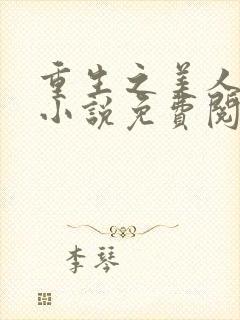 重生之美人
小說免費閱
李琴